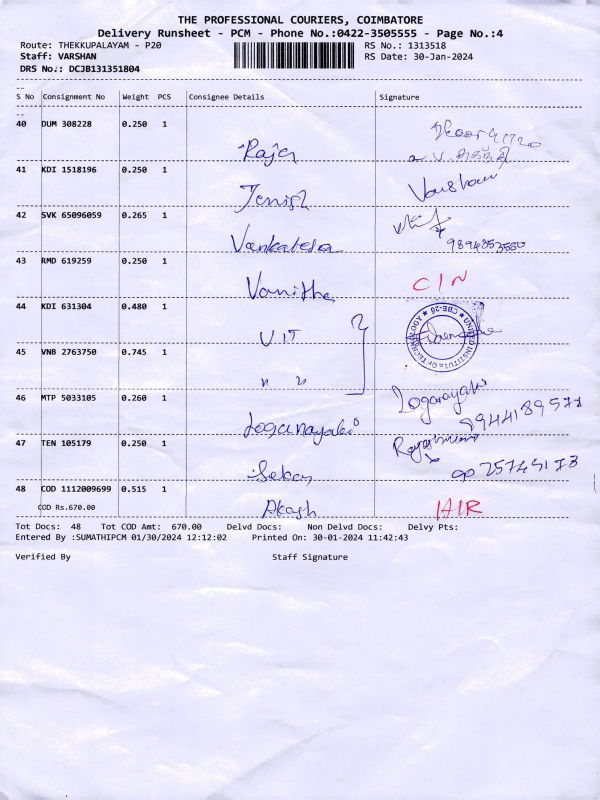 THE PROFESSIONAL COURIERS, COIMBATORE
Delivery Runsheet - PCM - Phone No.:0422-3505555 - Page No.:4
Route: THEKKUPALAYAM - P20 RS No.: 1313518
Staff: VARSHAN RS Date: 30-Jan-2024
DRS No.: DCJB131351804
S No Consignment No Weight PCS Consignee Details Signature
40 DUM 308228 0.250 1
Raja
41 KDI 1518196 0.250 1
Jenish Varshan
42 SVK 65096059 0.265 1
Vankatesa 9894853580
43 RMD 619259 0.250 1
Vanitha C/N
44 KDI 631304 0.480 1
UIT
45 VNB 2763750 0.745 1
" "
UNITED INSTITUTE OF TECHNOLOGY CBE-20
46 MTP 5033105 0.260 1
Loganayaki Loganayaki 9944189577
47 TEN 105179 0.250 1
Sekar 9025745173
48 COD 1112009699 0.515 1
COD Rs.670.00 Akash
Tot Docs: 48 Tot COD Amt: 670.00 Delvd Docs: Non Delvd Docs: Delvy Pts:
Entered By :SUMATHIPCM 01/30/2024 12:12:02 Printed On: 30-01-2024 11:42:43
Verified By Staff Signature